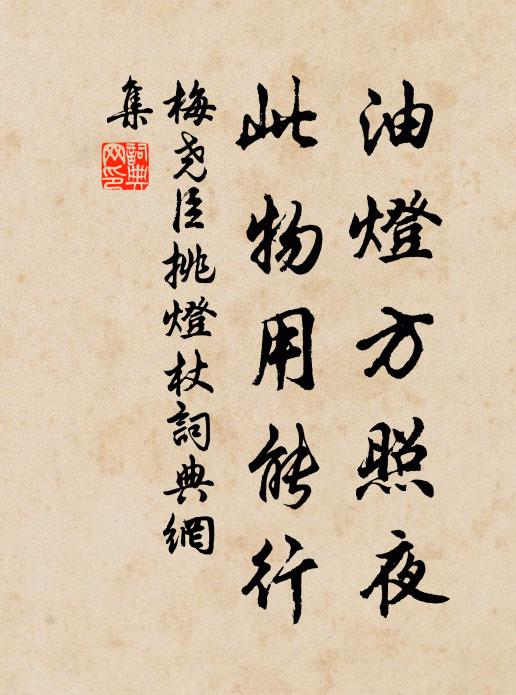 油燈方照夜
此物用能行
梅堯臣挑燈杖詞典網
集
詞典
网印